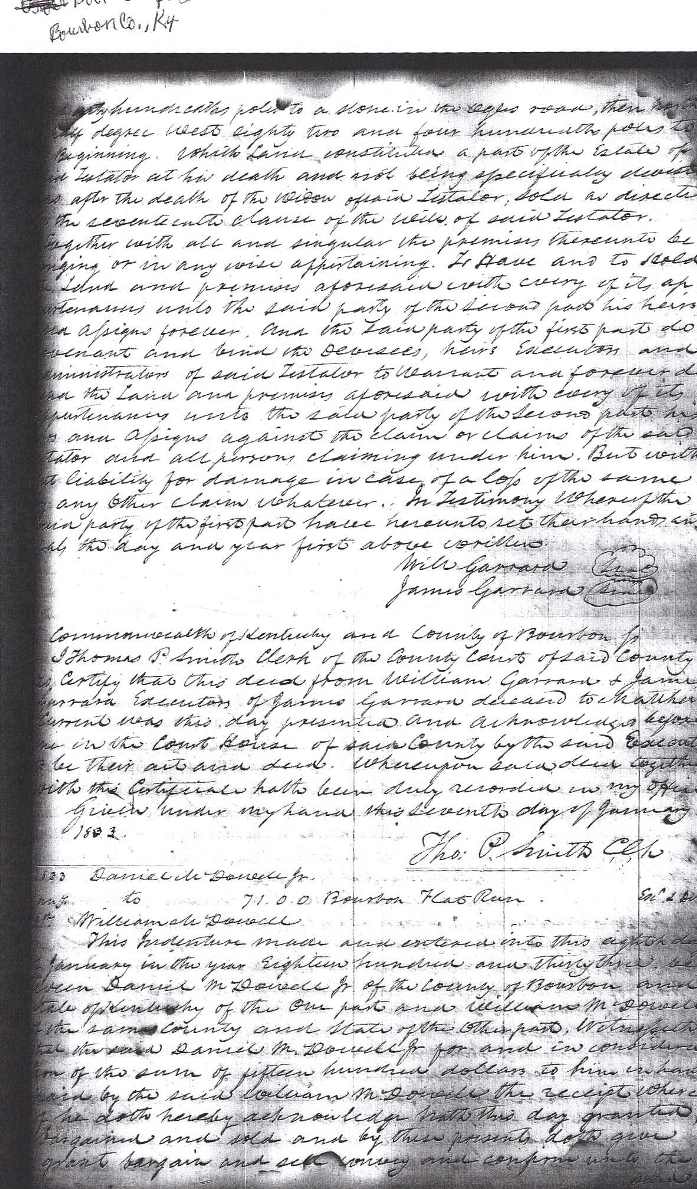 Bourbon Co., Ky
hundredths poles to a stone in the road, then
degree West eighty two and four hundredth poles to
Beginning. Which Land constituted a part of the Estate of
Testator at his death and not being specifically
after the death of the Widow of said Testator, sold as
the seventeenth clause of the Will of said Testator.
ogether with all and singular the premises thereunto be
nging or in any wise appertaining. To Have and to Hold
Land and premises aforesaid with every of its ap
urtenances unto the said party of the Second part his heirs
Assigns forever. And the said party of the first part do
venant and bind the Devisees, heirs Executors and
ministrators of said Testator to Warrant and forever d
the Land and premises aforesaid with every of its
purtenances unto the said party of the Second part
and Assigns against the claim or claims of the said
tator and all persons claiming under him. But with
t liability for damage in case of a loss of the same
any Other claim whatever. In Testimony Whereof the
party of the first part have hereunto set their hands
the day and year first above written
Will Garrard Seal
James Garrard Seal
Commonwealth of Kentucky and County of Bourbon
I Thomas P. Smith Clerk of the County Court of said County
Certify that this deed from William Garrard & Jame
Garrard Executors of James Garrard deceased to
Current was this day presented and acknowledged before
me in the Court House of said County by the said
be their act and deed. Whereupon said deed togethe
with this Certificate hath been duly recorded in my Office
Given under my hand this seventh day of January
1833.
Tho: P. Smith Clk
Daniel McDowell Jr.
to 71.0.0 Bourbon Flat Run
William McDowell
This Indenture made and entered into this eighth
January in the year Eighteen hundred and thirty three
ween Daniel McDowell Jr of the County of Bourbon and
tate of Kentucky of the One part and William McDowell
the same County and State of the Other part. Witnesseth
the said Daniel McDowell Jr for and in
on of the sum of fifteen hundred dollars to him in
paid by the said William McDowell the receipt Where
he doth hereby acknowledge hath this day granted
Bargained and sold and by these presents doth give
grant bargain and sell convey and confirm unto the
said